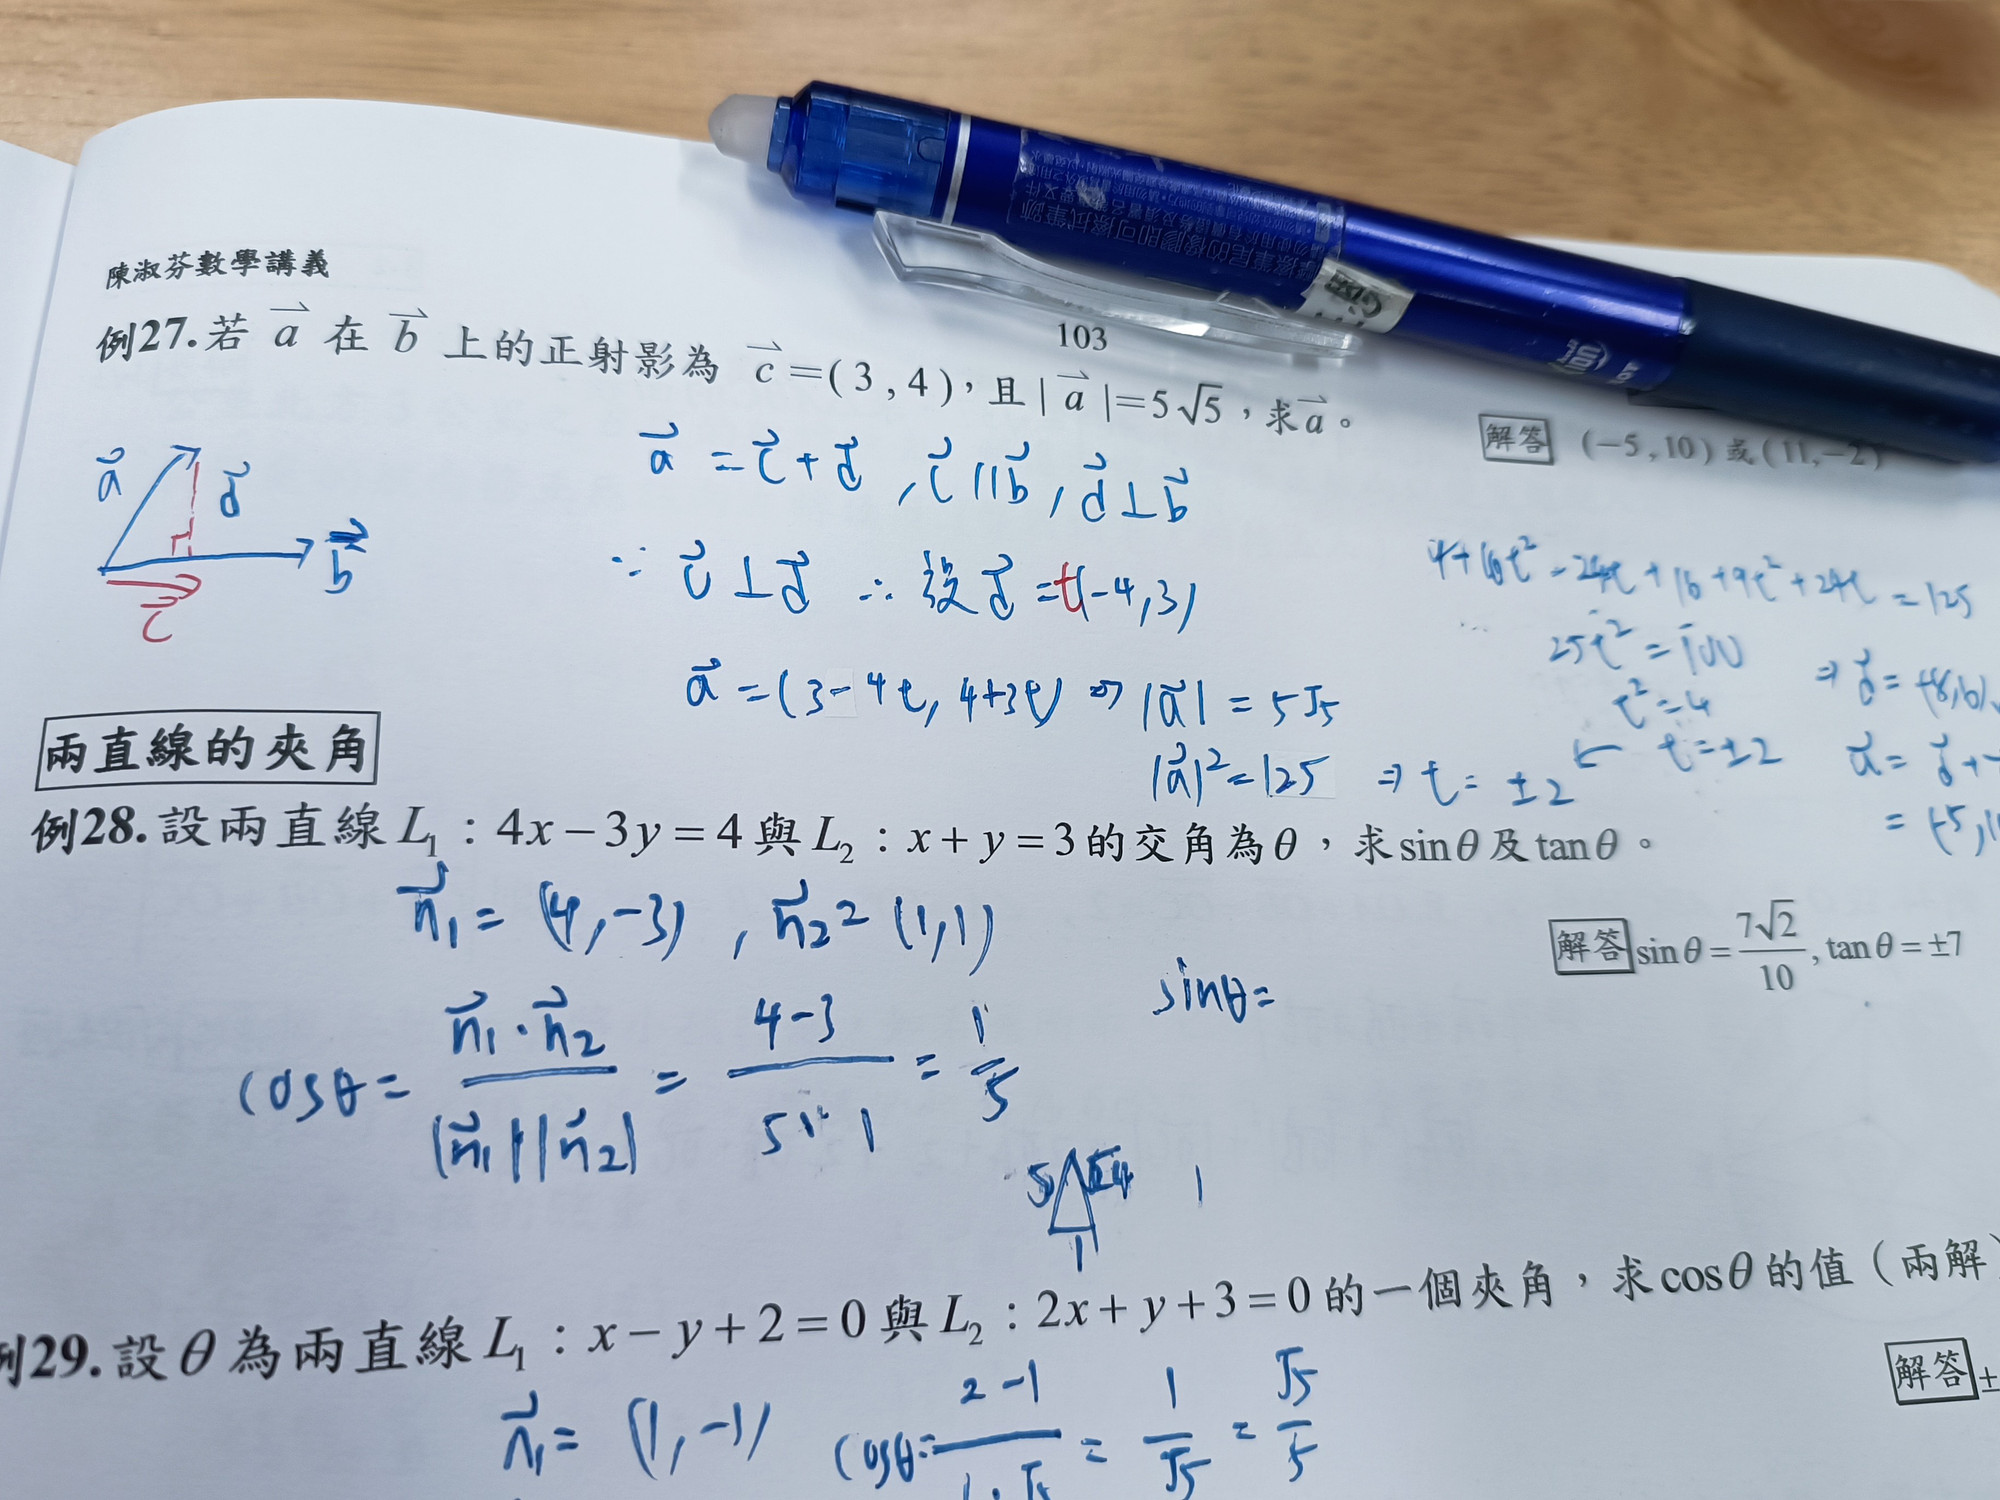 陳淑芬數學講義
103
例27.若 a⃗ 在 b⃗ 上的正射影為 c⃗=(3,4),且|a⃗|=5√5,求a⃗。
解答 (-5,10)或(11,-2)
a⃗ = c⃗ + d⃗ , c⃗ // b⃗ , d⃗ ⊥ b⃗
a⃗
d⃗
b⃗
c⃗
∵ c⃗ ⊥ d⃗ ∴ 設 d⃗ = t(-4,3)
a⃗ = (3-4t, 4+3t) ⇒ |a⃗| = 5√5
|a⃗|² = 125 ⇒ t = ±2
+16t² - 24t + 16 + 9t² + 24t = 125
25t² = 100
t² = 4
t = ±2
⇒ d⃗ =
a⃗ = d⃗ +
兩直線的夾角
例28.設兩直線L₁:4x-3y=4與L₂:x+y=3的交角為θ,求sinθ及tanθ。
解答 sinθ=7√2/10, tanθ=±7
n⃗₁ = (4,-3) , n⃗₂ = (1,1)
sinθ=
cosθ = n⃗₁·n⃗₂/|n⃗₁||n⃗₂| = 4-3/5·1 = 1/5
5
1
1
例29.設θ為兩直線L₁:x-y+2=0與L₂:2x+y+3=0的一個夾角,求cosθ的值(兩解)
解答 ±
n⃗₁ = (1,-1)
cosθ= 2-1/ = 1/√5 = √5/5